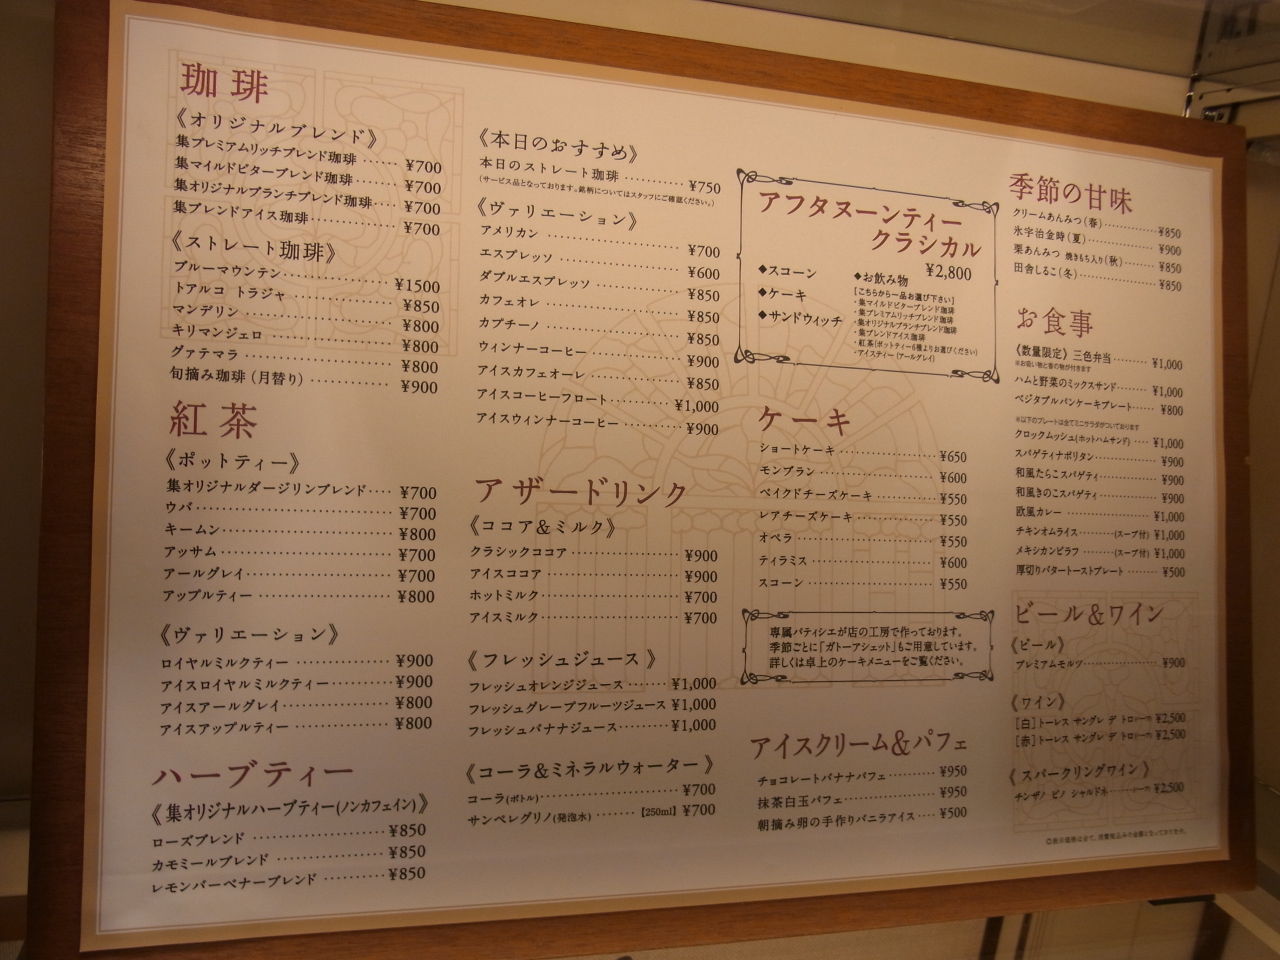 珈琲
《オリジナルブレンド》
集プレミアムリッチブレンド珈琲 ¥700
集マイルドビターブレンド珈琲 ¥700
集オリジナルブランチブレンド珈琲 ¥700
集ブレンドアイス珈琲 ¥700
《ストレート珈琲》
ブルーマウンテン ¥1500
トアルコ トラジャ ¥850
マンデリン ¥800
キリマンジェロ ¥800
グァテマラ ¥800
旬摘み珈琲（月替り） ¥900
紅茶
《ポットティー》
集オリジナルダージリンブレンド ¥700
ウバ ¥700
キームン ¥800
アッサム ¥700
アールグレイ ¥700
アップルティー ¥800
《ヴァリエーション》
ロイヤルミルクティー ¥900
アイスロイヤルミルクティー ¥900
アイスアールグレイ ¥800
アイスアップルティー ¥800
ハーブティー
《集オリジナルハーブティー(ノンカフェイン)》
ローズブレンド ¥850
カモミールブレンド ¥850
レモンバーベナーブレンド ¥850
《本日のおすすめ》
本日のストレート珈琲 ¥750
(サービス品となっております。銘柄についてはスタッフにご確認ください。)
《ヴァリエーション》
アメリカン ¥700
エスプレッソ ¥600
ダブルエスプレッソ ¥850
カフェオレ ¥850
カプチーノ ¥850
ウィンナーコーヒー ¥900
アイスカフェオーレ ¥850
アイスコーヒーフロート ¥1,000
アイスウィンナーコーヒー ¥900
アザードリンク
《ココア&ミルク》
クラシックココア ¥900
アイスココア ¥900
ホットミルク ¥700
アイスミルク ¥700
《フレッシュジュース》
フレッシュオレンジジュース ¥1,000
フレッシュグレープフルーツジュース ¥1,000
フレッシュバナナジュース ¥1,000
《コーラ&ミネラルウォーター》
コーラ(ボトル) ¥700
サンペレグリノ(発泡水) 【250ml】¥700
アフタヌーンティー
クラシカル
¥2,800
◆スコーン
◆ケーキ
◆サンドウィッチ
◆お飲み物
[こちらから一品お選び下さい]
・集マイルドビターブレンド珈琲
・集プレミアムリッチブレンド珈琲
・集オリジナルブランチブレンド珈琲
・集ブレンドアイス珈琲
・紅茶(ポットティー6種よりお選びください)
・アイスティー（アールグレイ）
ケーキ
ショートケーキ ¥650
モンブラン ¥600
ベイクドチーズケーキ ¥550
レアチーズケーキ ¥550
オペラ ¥550
ティラミス ¥600
スコーン ¥550
専属パティシエが店の工房で作っております。
季節ごとに「ガトーアシェット」もご用意しています。
詳しくは卓上のケーキメニューをご覧ください。
アイスクリーム&パフェ
チョコレートバナナパフェ ¥950
抹茶白玉パフェ ¥950
朝摘み卵の手作りバニラアイス ¥500
季節の甘味
クリームあんみつ（春） ¥850
氷宇治金時（夏） ¥900
栗あんみつ 焼きもち入り（秋） ¥850
田舎しるこ（冬） ¥850
お食事
《数量限定》三色弁当 ¥1,000
※お吸い物と香の物が付きます
ハムと野菜のミックスサンド ¥1,000
ベジタブルパンケーキプレート ¥800
※以下のプレートは全てミニサラダがついております
クロックムッシュ(ホットハムサンド) ¥1,000
スパゲティナポリタン ¥900
和風たらこスパゲティ ¥900
和風きのこスパゲティ ¥900
欧風カレー ¥1,000
チキンオムライス (スープ付) ¥1,000
メキシカンピラフ (スープ付) ¥1,000
厚切りバタートーストプレート ¥500
ビール&ワイン
《ビール》
プレミアムモルツ ¥900
《ワイン》
[白]トーレス サングレ デ トロ ¥2,500
[赤]トーレス サングレ デ トロ ¥2,500
《スパークリングワイン》
チンザノ ピノ シャルドネ ¥2,500